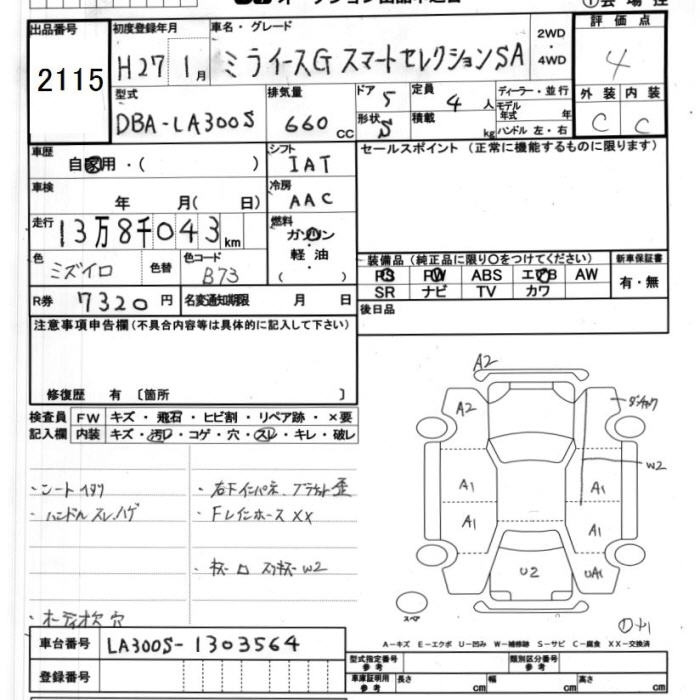 出品番号
2115
初度登録年月
H27 1月
車名・グレード
ミライースG スマートセレクションSA
2WD
・
4WD
評価点
4
外装 内装
C C
型式
DBA-LA300S
排気量
660 CC
ドア 5
形状 5
定員 4 人
積載 kg
ディーラー・並行
モデル年式 年
ハンドル 左・右
車歴
自家用・( )
シフト
IAT
セールスポイント (正常に機能するものに限ります)
車検
年 月( 日)
冷房
AAC
走行
13万8千043km
燃料
ガソリン
軽油
( )
色
ミズイロ
色替
色コード
B73
装備品 (純正品に限り○をつけてください)
PS PW ABS エアB AW
SR ナビ TV カワ
新車保証書
有・無
R券 7320円
名変通知期限 月 日
後日品
注意事項申告欄 (不具合内容等は具体的に記入して下さい)
修復歴 有 〔箇所 〕
検査員 FW キズ・飛石・ヒビ割・リペア跡・×要
記入欄 内装 キズ・汚レ・コゲ・穴・スレ・キレ・破レ
・シートイタリ
・ハンドルスレ、ハゲ
・オーディオ枕穴
・右下インパネ、ブラケット歪
・FレインホースXX
・キズ
W2
A2
A2
W2
A1 A1
A1 A1
U2 UA1
スペア
A-キズ E-エクボ U-凹み W-補修跡 S-サビ C-腐食 XX-交換済
車台番号 LA300S-1303564
登録番号
型式指定番号 参考
類別区分番号 参考
車庫証明用 参考 長さ cm 幅 cm 高さ cm